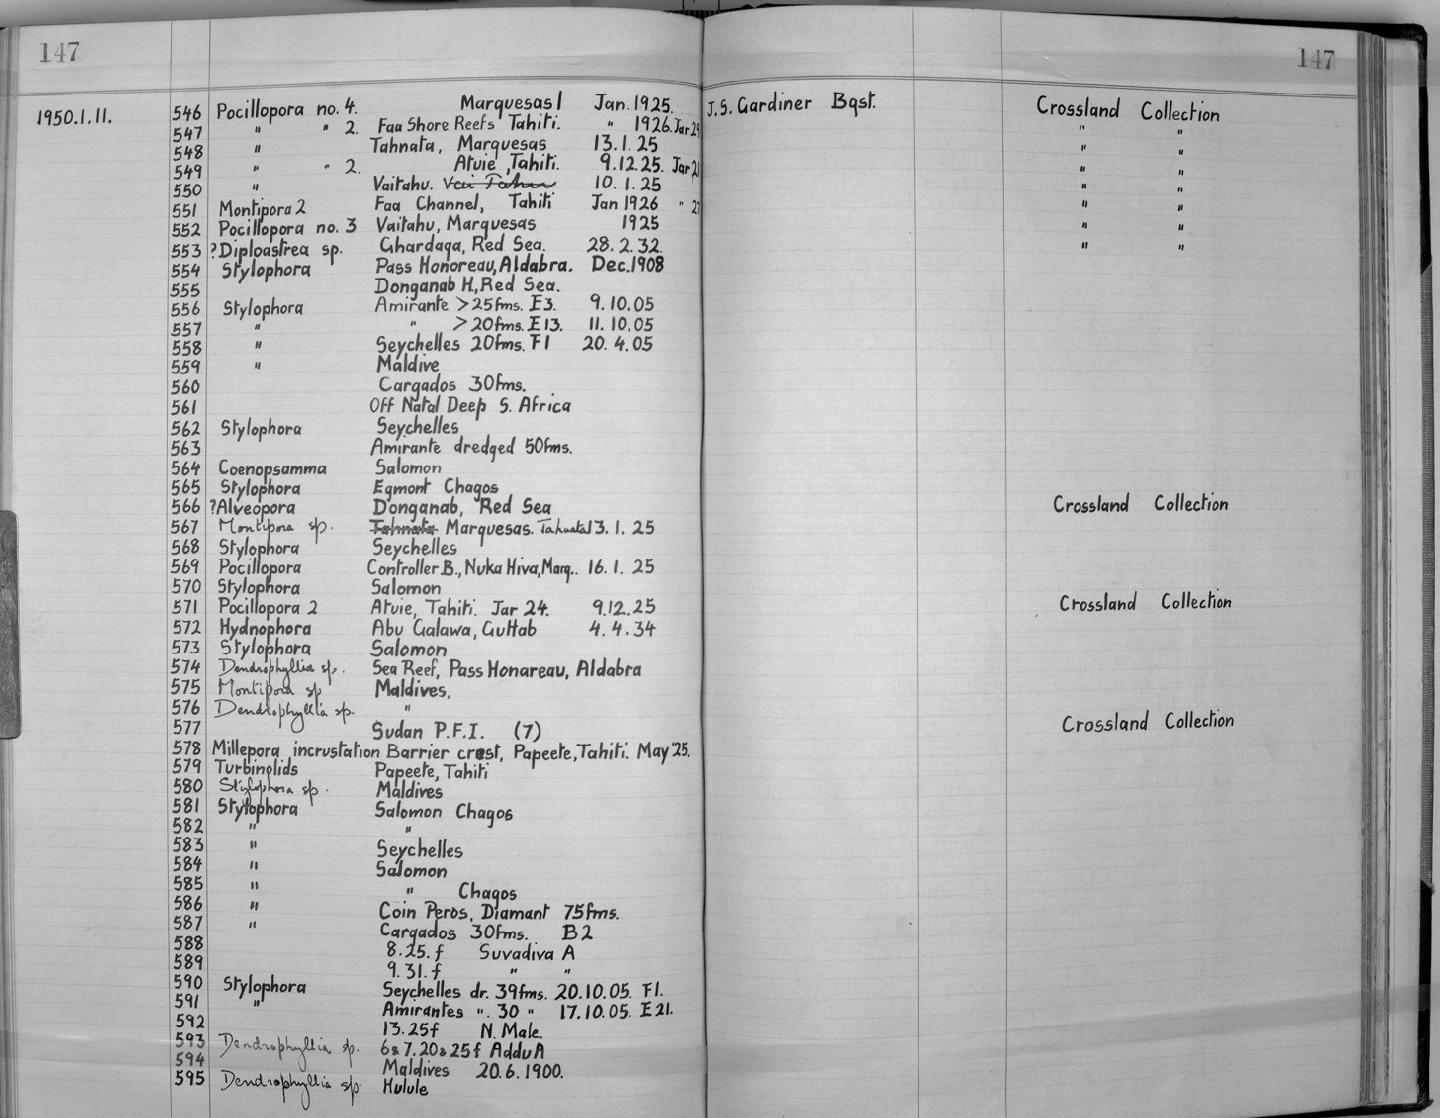 147
147
1950.1.11. 546 Pocillopora no. 4. Marquesas I Jan. 1925. J. S. Gardiner Bqst. Crossland Collection
547 " " 2. Faa Shore Reefs Tahiti. " 1926. Jar 29 " "
548 " Tahnata, Marquesas 13.1.25 " "
549 " " 2. Atuie, Tahiti. 9.12.25. Jar 21 " "
550 " Vaitahu. 10.1.25 " "
551 Montipora 2 Faa Channel, Tahiti Jan 1926 " 27 " "
552 Pocillopora no. 3 Vaitahu, Marquesas 1925 " "
553 ?Diploastrea sp. Ghardaqa, Red Sea. 28.2.32. " "
554 Stylophora Pass Honoreau, Aldabra. Dec. 1908
555 Donganab H., Red Sea.
556 Stylophora Amirante >25fms. E3. 9.10.05
557 " " >20fms. E13. 11.10.05
558 " Seychelles 20fms. F1 20.4.05
559 " Maldive
560 Cargados 30fms.
561 Off Natal Deep S. Africa
562 Stylophora Seychelles
563 Amirante dredged 50fms.
564 Coenopsamma Salomon
565 Stylophora Egmont Chagos
566 ?Alveopora Donganab, Red Sea Crossland Collection
567 Montipora sp. Tahnata Marquesas. Tahuata 13.1.25
568 Stylophora Seychelles
569 Pocillopora Controller B., Nuka Hiva, Marq.. 16.1.25
570 Stylophora Salomon
571 Pocillopora 2 Atuie, Tahiti. Jar 24. 9.12.25 Crossland Collection
572 Hydnophora Abu Galawa, Guttab 4.4.34
573 Stylophora Salomon
574 Dendrophyllia sp. Sea Reef, Pass Honareau, Aldabra
575 Montipora sp Maldives.
576 Dendrophyllia sp. "
577 Sudan P.F.I. (7) Crossland Collection
578 Millepora incrustation Barrier crest, Papeete, Tahiti. May '25.
579 Turbinolids Papeete, Tahiti
580 Stylophora sp. Maldives
581 Stylophora Salomon Chagos
582 " "
583 " Seychelles
584 " Salomon
585 " " Chagos
586 " Coin Peros, Diamant 75fms.
587 " Cargados 30fms. B2
588 8.25.f Suvadiva A
589 9.31.f " "
590 Stylophora Seychelles dr. 39fms. 20.10.05. F1.
591 " Amirantes ". 30 " 17.10.05. E21.
592 13.25f N. Male.
593 Dendrophyllia sp. 6&7.20&25f Addu A
594 Maldives 20.6.1900.
595 Dendrophyllia sp Hulule